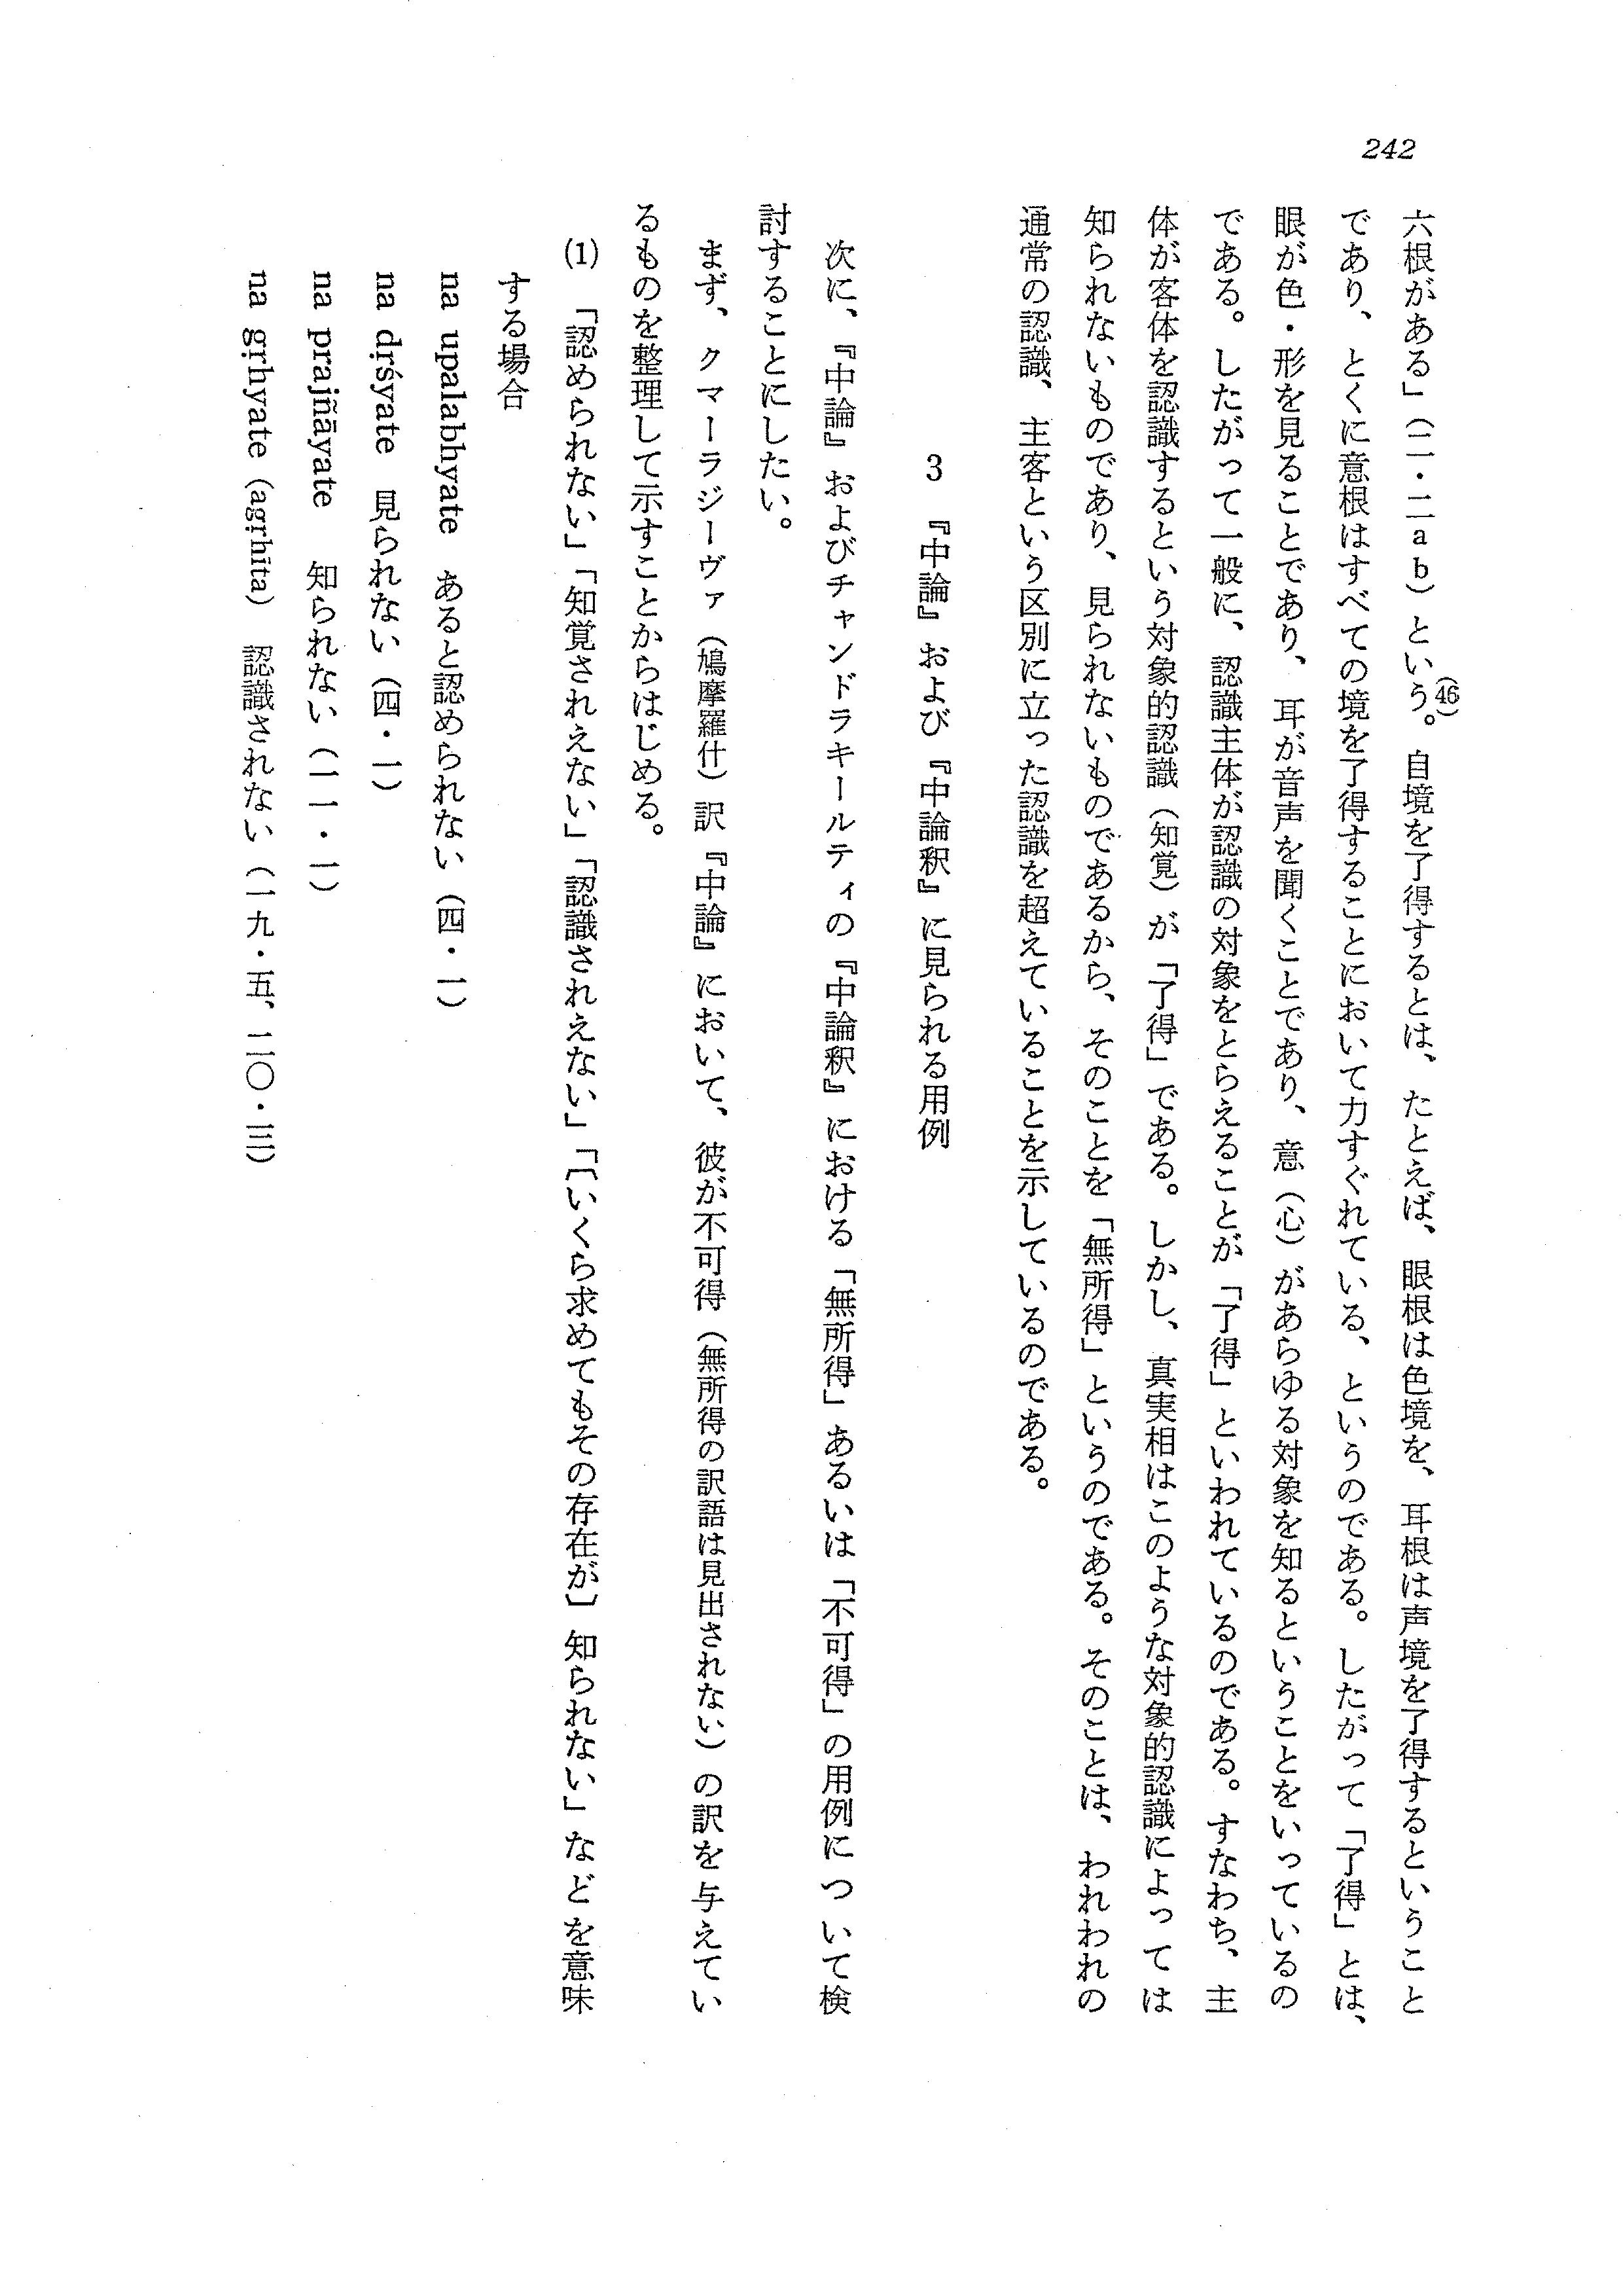 242
六根がある」（二・二ａｂ）という。(46)自境を了得するとは、たとえば、眼根は色境を、耳根は声境を了得するということ
であり、とくに意根はすべての境を了得することにおいて力すぐれている、というのである。したがって「了得」とは、
眼が色・形を見ることであり、耳が音声を聞くことであり、意（心）があらゆる対象を知るということをいっているの
である。したがって一般に、認識主体が認識の対象をとらえることが「了得」といわれているのである。すなわち、主
体が客体を認識するという対象的認識（知覚）が「了得」である。しかし、真実相はこのような対象的認識によっては
知られないものであり、見られないものであるから、そのことを「無所得」というのである。そのことは、われわれの
通常の認識、主客という区別に立った認識を超えていることを示しているのである。
3　『中論』および『中論釈』に見られる用例
次に、『中論』およびチャンドラキールティの『中論釈』における「無所得」あるいは「不可得」の用例について検
討することにしたい。
まず、クマーラジーヴァ（鳩摩羅什）訳『中論』において、彼が不可得（無所得の訳語は見出されない）の訳を与えてい
るものを整理して示すことからはじめる。
(1)　「認められない」「知覚されえない」「認識されえない」「〔いくら求めてもその存在が〕知られない」などを意味
する場合
na upalabhyate　あると認められない（四・一）
na dṛśyate　見られない（四・一）
na prajñāyate　知られない（一一・一）
na gṛhyate（agṛhīta）　認識されない（一九・五、二〇・三）